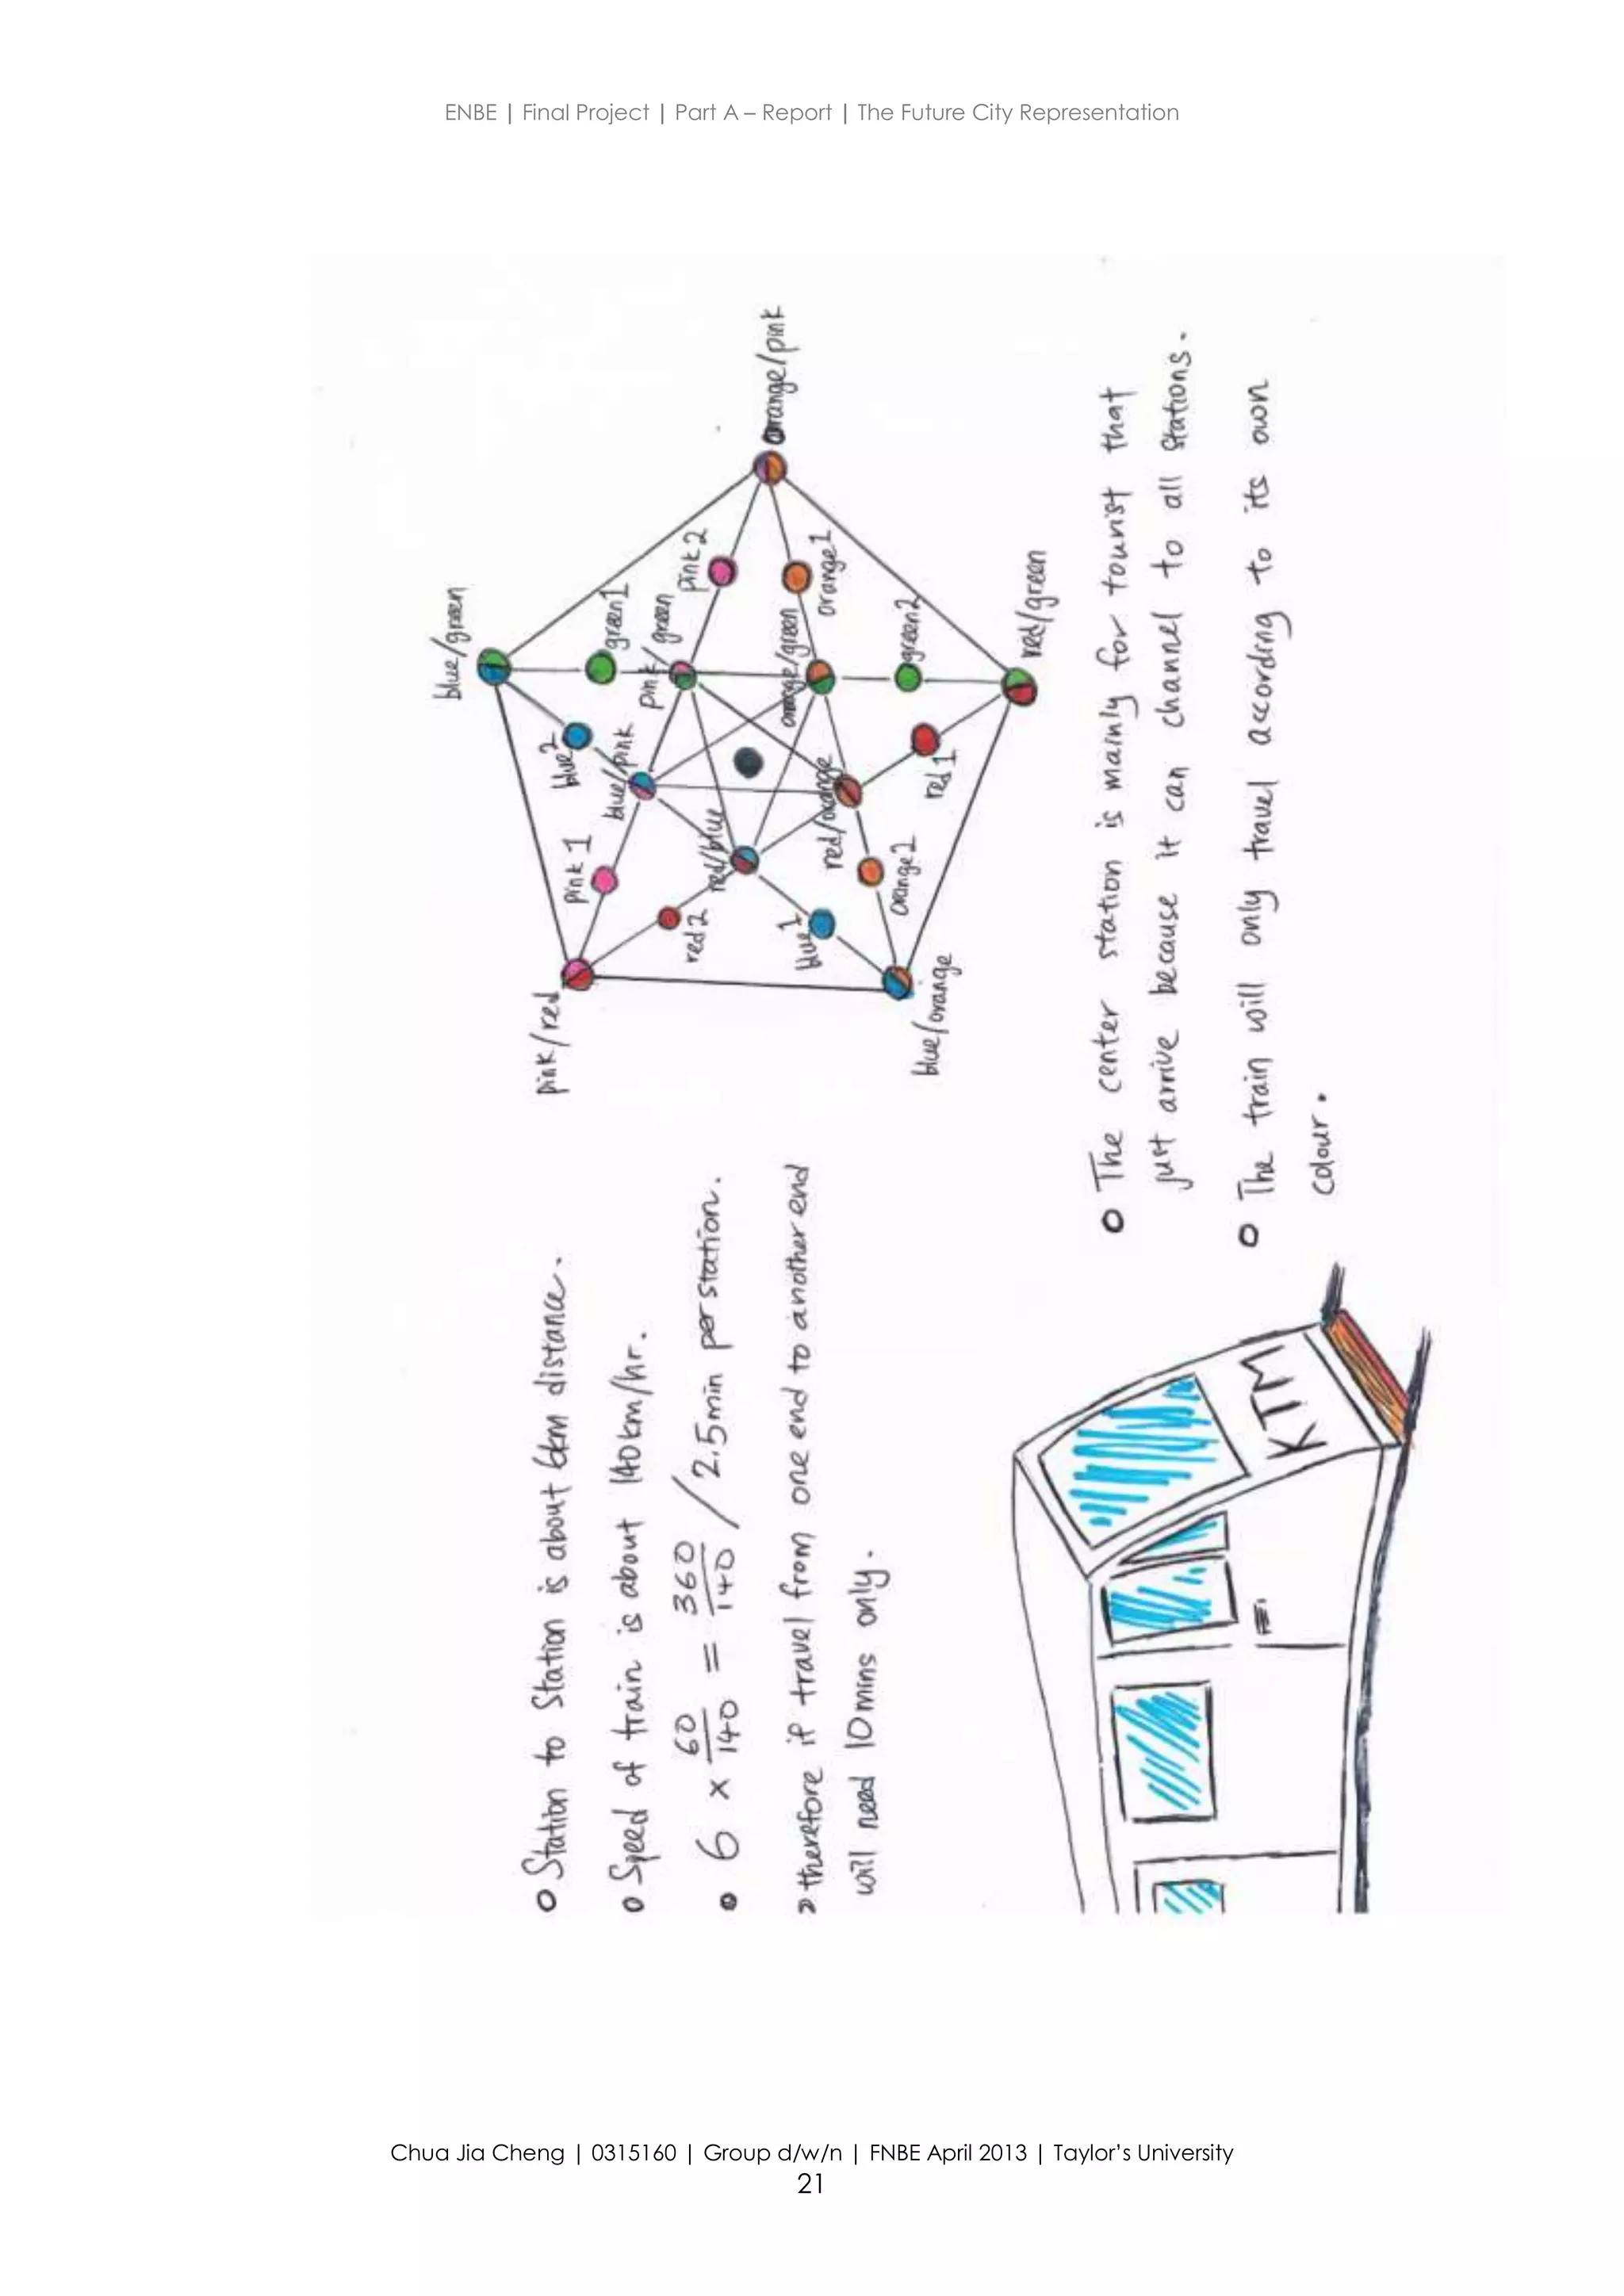 ENBE | Final Project | Part A – Report | The Future City Representation
o Station to Station is about 6km distance.
o Speed of train is about 140km/hr.
• 6 x 60/140 = 360/140 / 2.5min per station.
» therefore if travel from one end to another end
will need 10mins only.
pink/red
blue/green
orange/pink
red/green
blue/orange
pink 1
blue2
green1
pink2
blue/pink
pink/green
red2
red/blue
orange/green
orange1
blue1
red/orange
green2
orange2
red 1
KTM
o The center station is mainly for tourist that
just arrive because it can channel to all stations.
o The train will only travel according to its own
colour.
Chua Jia Cheng | 0315160 | Group d/w/n | FNBE April 2013 | Taylor’s University
21